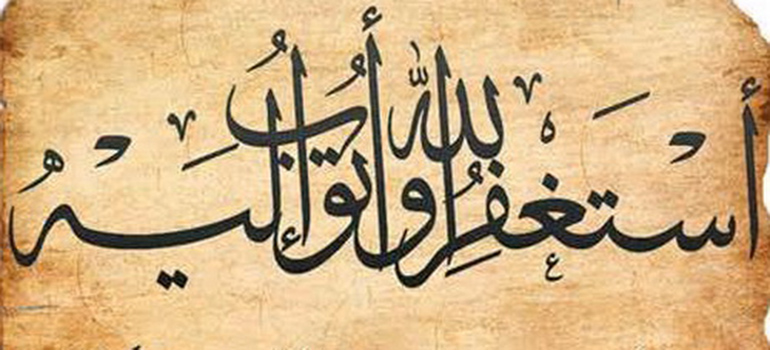 أَسْتَغْفِرُ اللهَ وَأَتُوبُ إِلَيْهِ